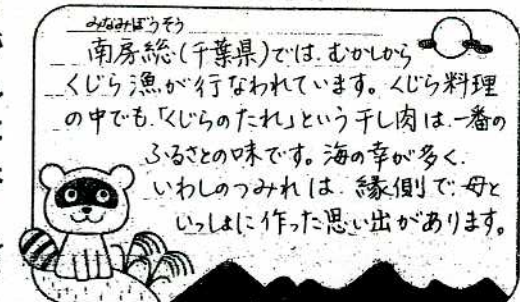 みなみぼうそう
南房総(千葉県)では、むかしから
くじら漁が行なわれています。くじら料理
の中でも、「くじらのたれ」という干し肉は、一番の
ふるさとの味です。海の幸が多く、
いわしのつみれは、縁側で、母と
いっしょに作った思い出があります。